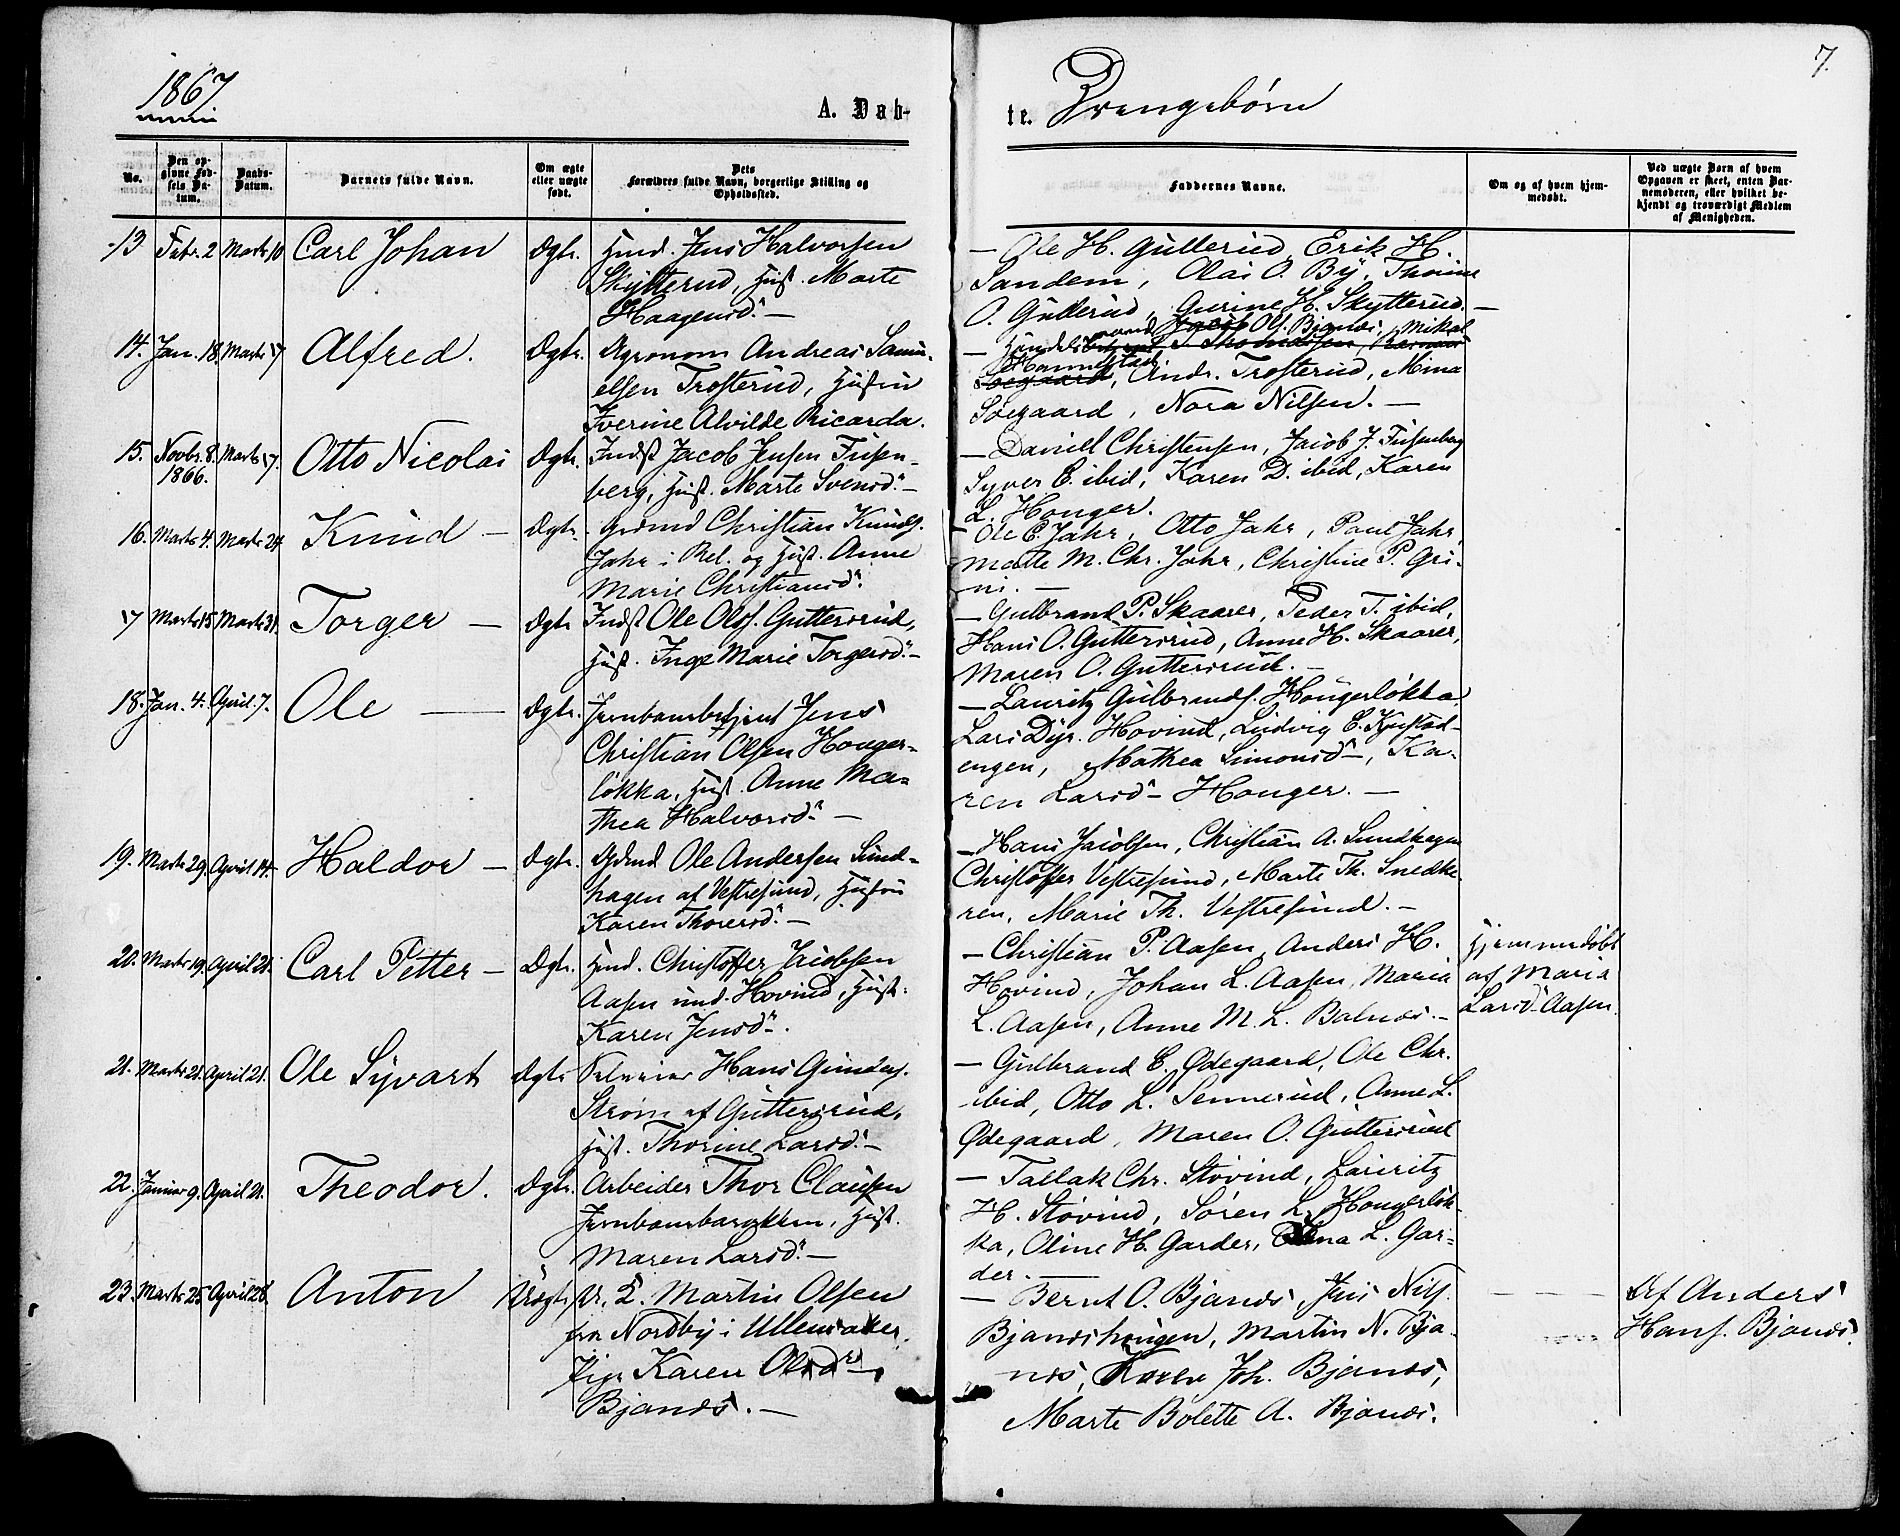 7.
1867.
A. Døb-
te. Drengebørn
No.
Den op-
givne Fød-
sels Da-
tum.
Daabs-
Datum.
Barnets fulde Navn.
Om ægte
eller uægte
født.
Dets
Forældres fulde Navn, borgerlige Stilling og
Opholdssted.
Faddernes Navne.
Om og af hvem hjem-
medøbt.
Ved uægte Børn af hvem
Opgaven er skeet, enten Bar-
nemoderen, eller hvilket be-
kjendt og troværdigt Medlem
af Menigheden.
13 Febr. 2 Marts 10 Carl Johan Ægte. Huusd. Jens Halvorsen
Skytterud, Hust. Marte
Haagensd. –
– Ole H. Gutterud, Erik H.
Sandem, Olai O. By, Thorine
O. Gutterud, Gurine H. Skytterud. –
14. Jan. 18. Marts 17 Alfred. Ægte. Agronom Andreas Samu-
elsen Trosterud, Hustru
Iverine Alvilde Ricarda.
Olf. Bjanæs, Mikal
Hammelstad
, Andr. Trosterud, Mina
Soegaard, Nora Nilsen. –
15. Novbr. 8. 1866. Marts 17. Otto Nicolai Ægte. Indst Jacob Jensen Fusen-
berg, Hust. Marte Svensd. –
– Daniel Christensen, Jacob J. Fusenberg
Syver E. ibid, Karen D. ibid, Karen
L. Honger.
16. Marts 4. Marts 24. Knud – Ægte. Grdmd Christian Knuds.
Jahr i Rel. og Hust. Anne
Marie Christiansd.
– Ole E. Jahr, Otto Jahr, Paul Jahr,
Marte M. Chr. Jahr, Christine P. Gri-
ni. –
17 Marts 15. Marts 31. Torger – Ægte Indst Ole Olss. Guttersrud,
Hust. Inge Marie Torgersd. –
– Gulbrand P. Skaarer, Peder T. ibid,
Hans O. Guttersrud, Anne H. Skaarer,
Maren O. Guttersrud. –
18. Jan. 4. April 7. Ole – Ægte. Jernbanebetjent Jens
Christian Olsen Honger-
løkka, Hust. Anne Ma-
thea Halvorsd. –
– Lauritz Gulbrands. Hongerløkka
Lars Dyr. Hovind, Ludvig E. Kjustad-
engen, Mathea Simonsd –, Ka-
ren Larsd – Honger. –
19. Marts 29. April 14. Haldor – Ægte. Grdmd Ole Andersen Sund-
hagen af Vestresund, Hustru
Karen Thoresd. –
– Hans Jacobsen, Christian A. Sundhagen
Christoffer Vestresund, Marte Th. Snedke-
ren, Marie Th. Vestresund. –
20. Marts 19. April 21. Carl Petter – Ægte. Huusd. Christoffer Jacobsen
Aasen und. Hovind, Hust.
Karen Jensd –.
– Christian P. Aasen, Anders H.
Hovind, Johan L. Aasen, Maria
L. Aasen, Anne M. L. Balnæs. –
Hjemmedøbt
af Maria
Larsd – Aasen.
21. Marts 21. April 21. Ole Syvart Ægte Selveier Hans Gunders.
Strøm af Guttersrud,
Hust. Thorine Larsd. –
– Gulbrand E. Ødegaard, Ole Chr.
ibid, Otto L. Sennerud, Anne L.
Ødegaard, Maren O. Guttersrud
22. Januar 9. April 21. Theodor. Ægte. Arbeider Thor Clausen
Jernbanebarakken, Hust.
Maren Larsd. –
– Tallak Chr. Støvind, Lauritz
H. Støvind, Søren L. Hongerløk-
ka, Oline H. Garder, L. Gar-
der. –
23. Marts 25. April 28. Anton Uægte. U. K. Martin Olsen
fra Nordby i Ullensaker,
Pige Karen Olsd –,
Bjanæs. –
– Bernt O. Bjanæs, Jens Nils.
Bjanæshougen, Martin N. Bja-
næs, Karen Joh. Bjanæs,
Marte Bolette A. Bjanæs.
Af Anders
Hans. Bjanæs.